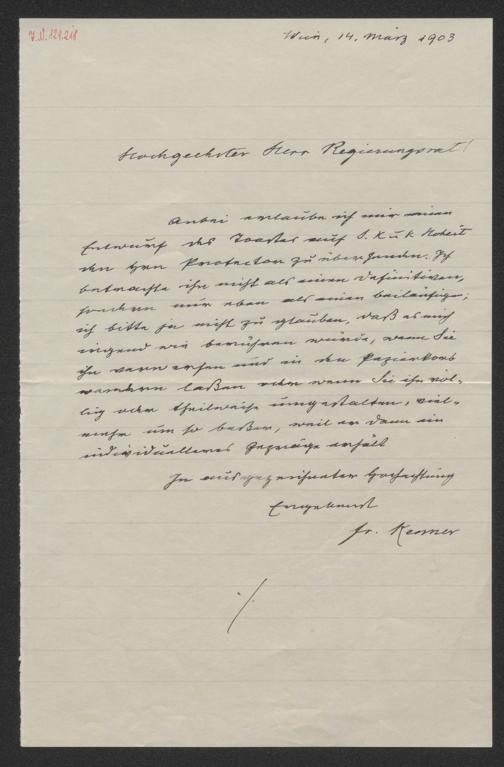 J.N. 121.218
Wien, 14. März 1903
Hochgeehrter Herr Regierungsrat!
Anbei erlaube ich mir einen
Entwurf des Toastes auf S. k. u. k. Hoheit
den Hrn Protector zu übersenden. Ich
betrachte ihn nicht als einen definitiven,
sondern nur eben als einen beiläufigen;
ich bitte ja nicht zu glauben, daß es mich
irgend wie berühren würde, wenn Sie
ihn verwerfen und in den Papierkorb
wandern laßen oder wenn Sie ihn völ-
lig oder theilweise umgestalten, viel-
mehr um so beßer, weil er dann ein
individuelleres Gepräge erhält
In ausgezeichneter Hochachtung
Ergebenst
Fr. Kenner